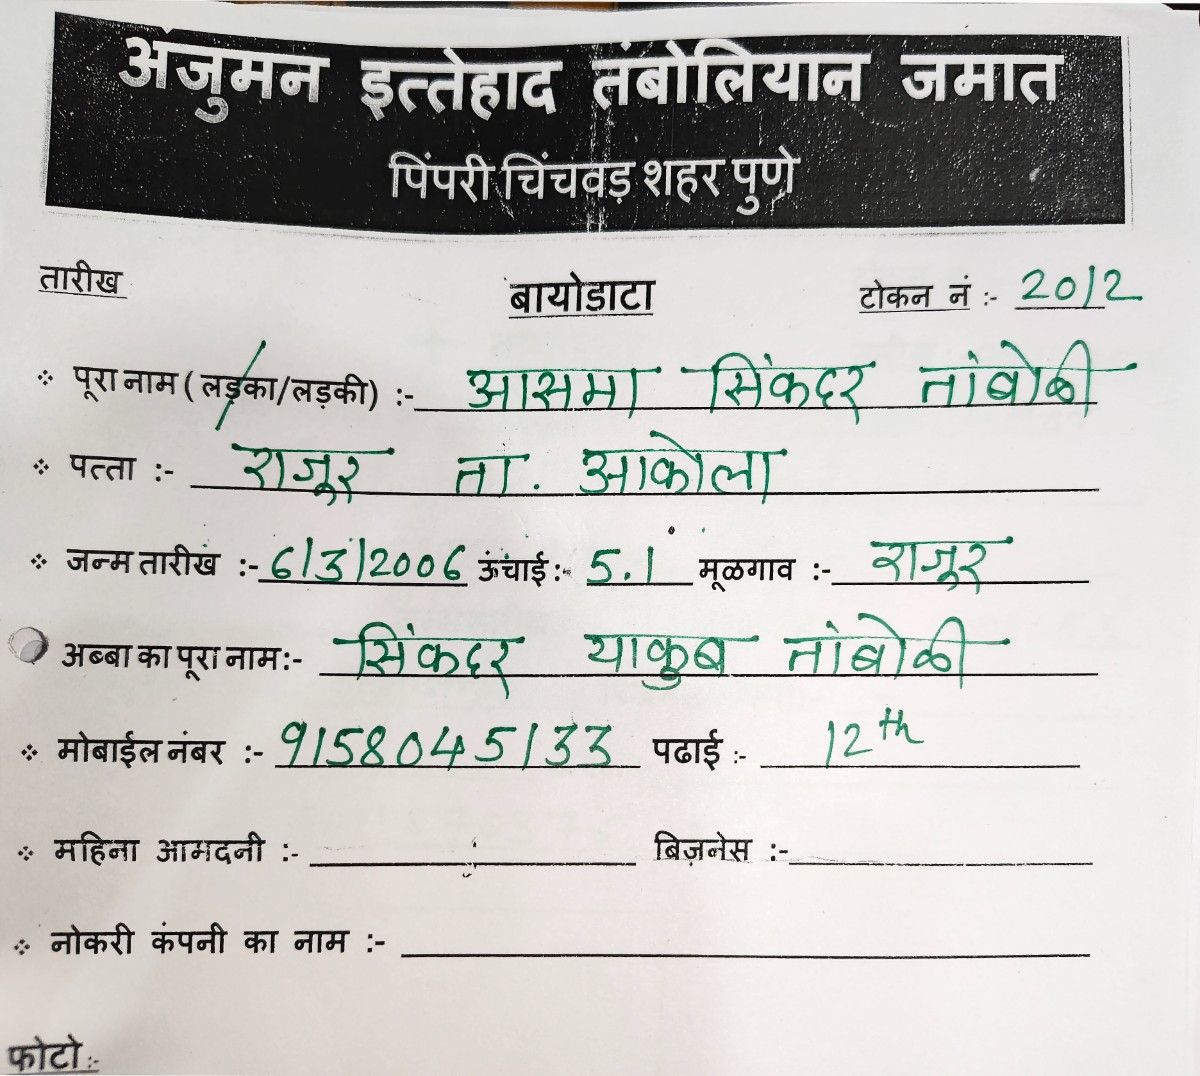 अंजुमन इत्तेहाद तंबोलियान जमात
पिंपरी चिंचवड़ शहर पुणे
तारीख बायोडाटा टोकन नं :- 2012
पूरा नाम ( लड़का/लड़की) :- आसमा सिंकदर तांबोळी
पत्ता :- राजूर ता. आकोला
जन्म तारीख :- 6/3/2006 ऊंचाई :- 5.1 मूळगाव :- राजूर
अब्बा का पूरा नाम:- सिंकदर याकुब तांबोळी
मोबाईल नंबर :- 9158045133 पढाई :- 12th
महिना आमदनी :- बिज़नेस :-
नोकरी कंपनी का नाम :-
फोटो :-